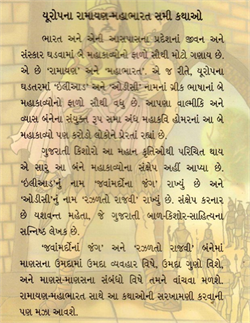 યૂરોપના રામાયણ-મહાભારત સમી કથાઓ
ભારત અને એની આસપાસના પ્રદેશનાં જીવન અને
સંસ્કાર ઘડવામાં બે મહાકાવ્યોનો ફાળો સૌથી મોટો ગણાય છે.
એ છે 'રામાયણ' અને 'મહાભારત'. એ જ રીતે, યૂરોપના
ઘડતરમાં 'ઇલીઆડ' અને 'ઓડીસી' નામનાં ગ્રીક ભાષાનાં બે
મહાકાવ્યોનો ફાળો સૌથી વધુ છે. આપણા વાલ્મીકિ અને
વ્યાસ બંનેના સંયુક્ત રૂપ સમા અંધ મહાકવિ હોમરનાં આ બે
મહાકાવ્યો પણ કરોડો લોકોને પ્રેરતાં રહ્યાં છે.
ગુજરાતી કિશોરો આ મહાન કૃતિઓથી પરિચિત થાય
એ સારુ આ બંને મહાકાવ્યોના સંક્ષેપ અહીં આપ્યા છે.
'ઇલીઆડ'નું નામ 'જવાંમર્દોના જંગ' રાખ્યું છે અને
'ઓડીસી'નું નામ 'રઝળતો રાજવી' રાખ્યું છે. સંક્ષેપ કરનાર
છે યશવન્ત મહેતા, જે ગુજરાતી બાળ-કિશોર-સાહિત્યના
સન્નિષ્ઠ લેખક છે.
'જવાંમર્દોના જંગ' અને 'રઝળતો રાજવી' બંનેમાં
માણસના ઉમદામાં ઉમદા વ્યવહાર વિષે, ઉમદા ગુણો વિશે,
અને માણસ-માણસના સંબંધો વિષે તમને વાંચવા મળશે.
રામાયણ-મહાભારત સાથે આ કથાઓની સરખામણી કરવાની
પણ મઝા આવશે.